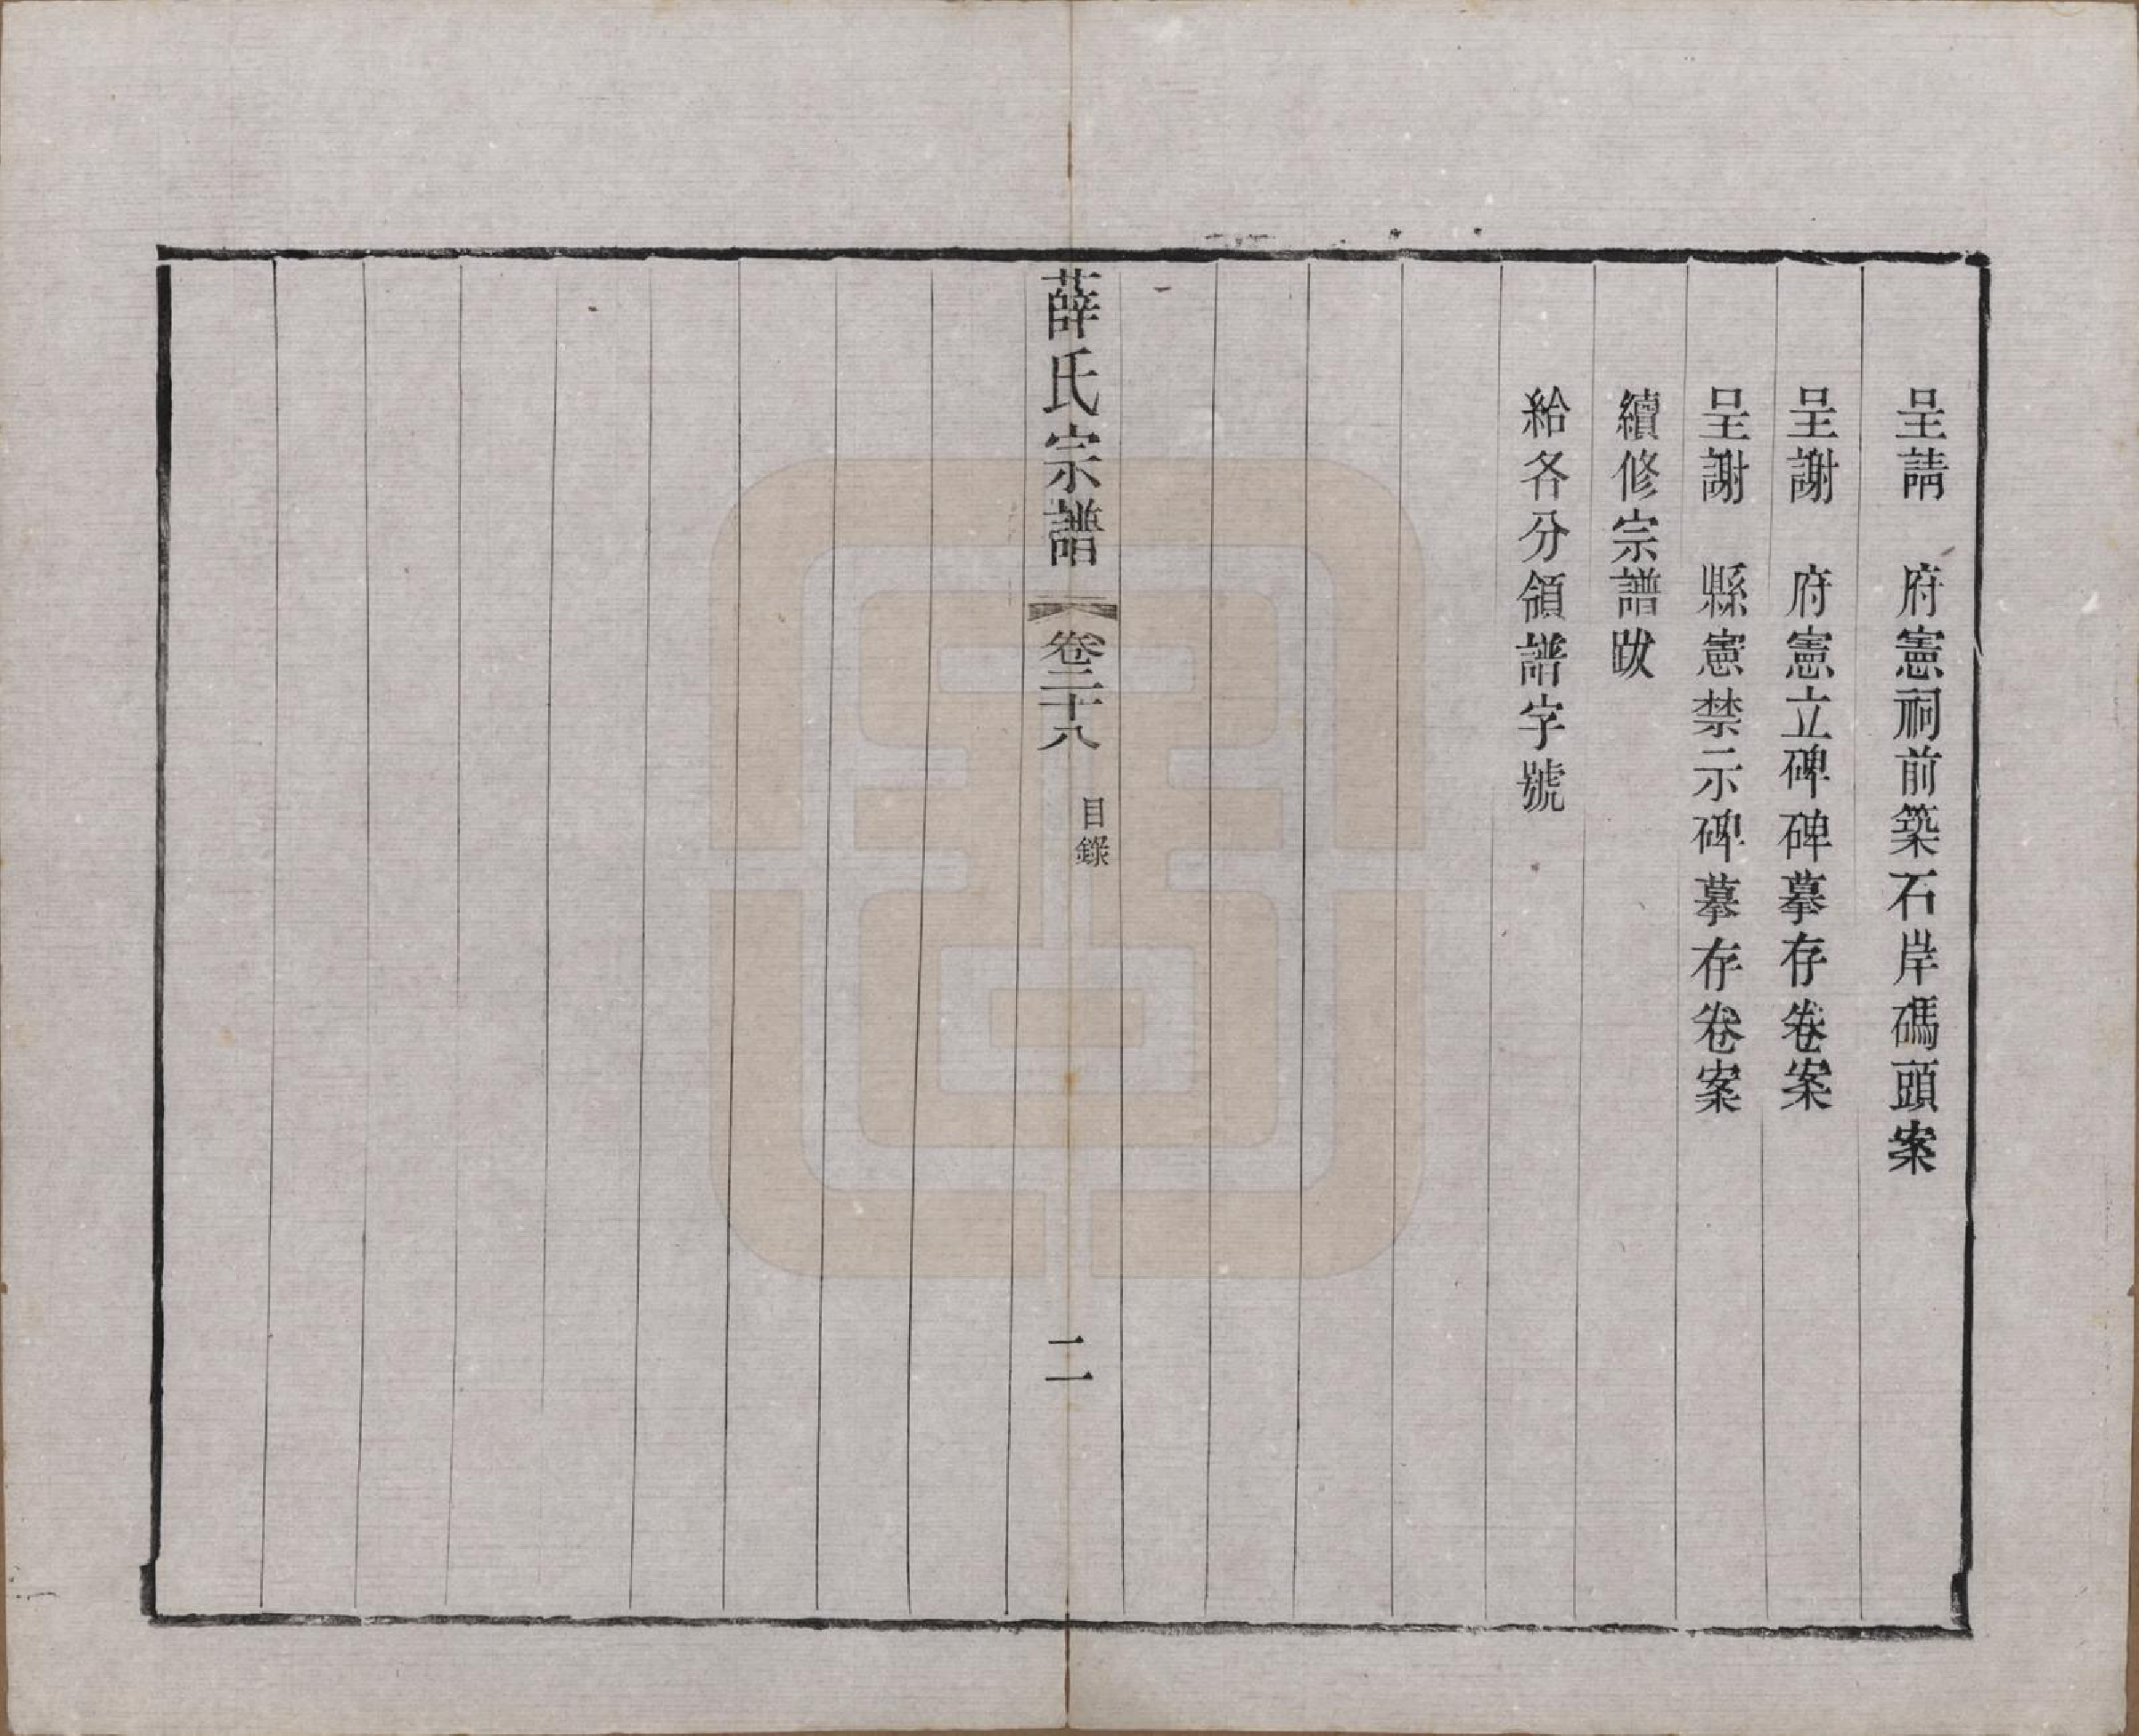 呈請　府憲祠前築石岸碼頭案
呈謝　府憲立碑碑摹存卷案
呈謝　縣憲禁示碑摹存卷案
續修宗譜跋
給各分領譜字號
薛氏宗譜　卷二十八　目錄　二